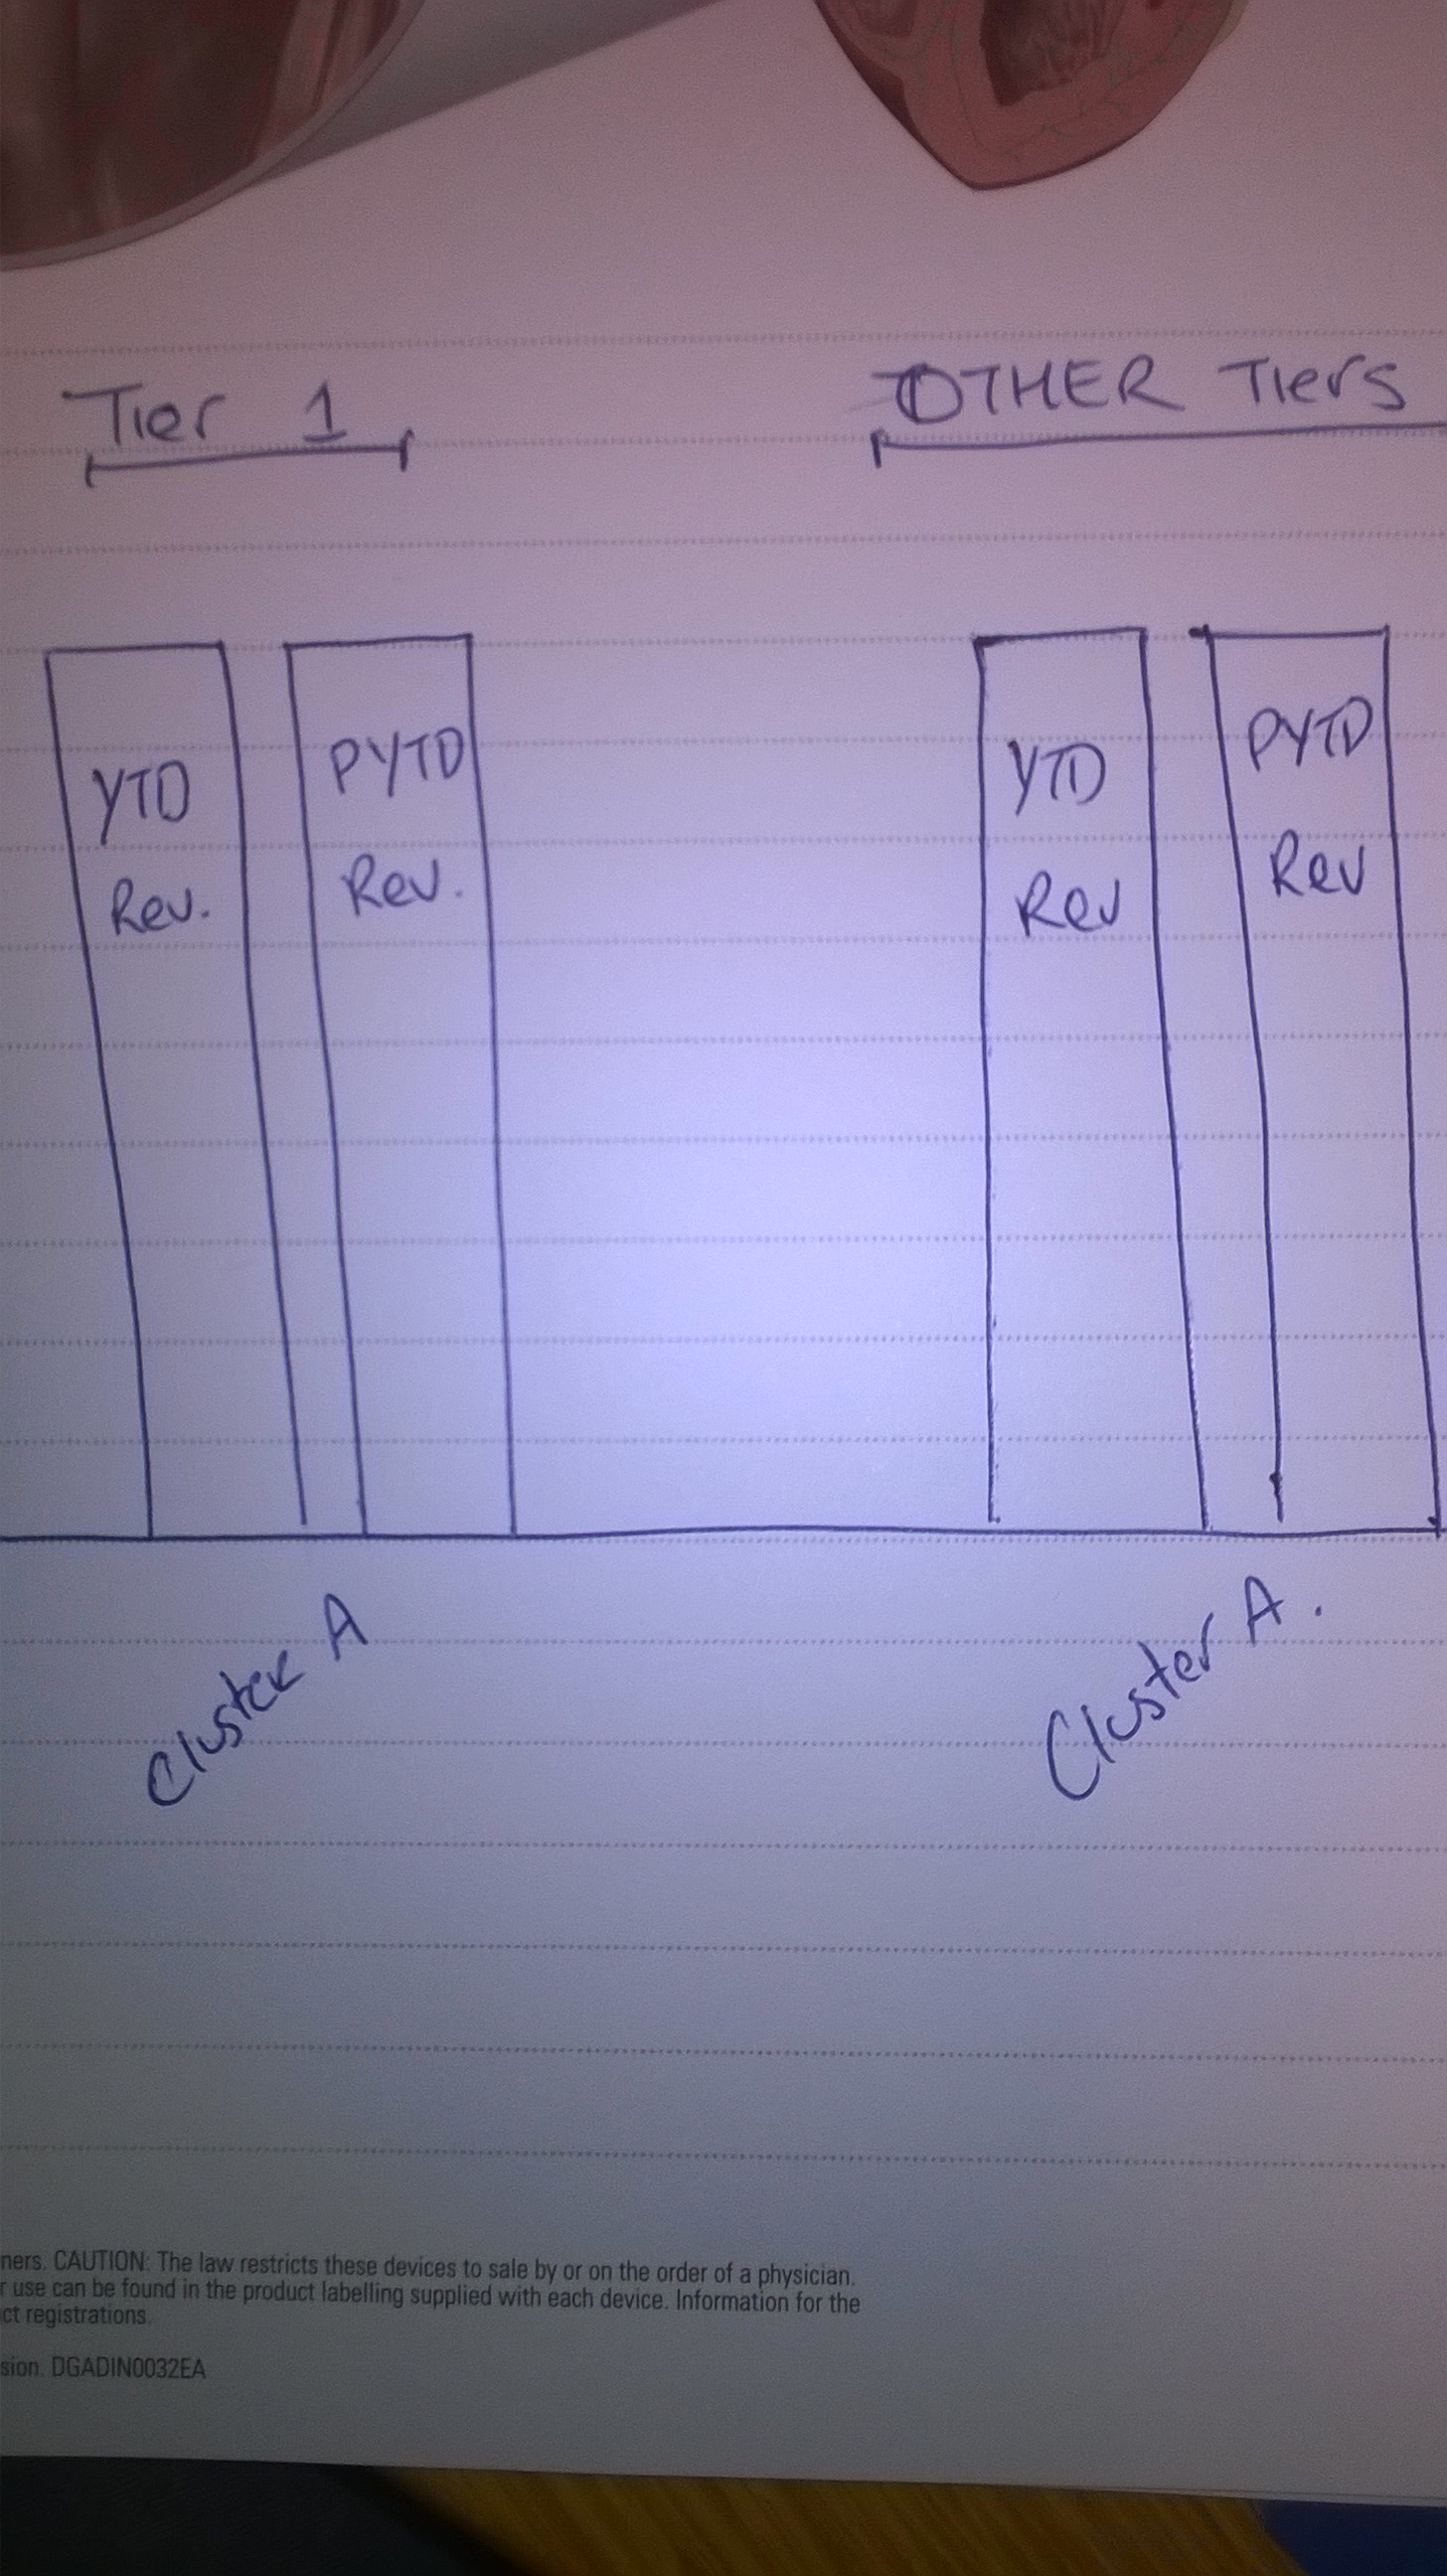 Tier 1
OTHER Tiers
YTD
Rev.
PYTD
Rev.
YTD
Rev
PYTD
Rev
Cluster A
Cluster A.
ners. CAUTION: The law restricts these devices to sale by or on the order of a physician.
r use can be found in the product labelling supplied with each device. Information for the
ct registrations.
sion. DGADIN0032EA